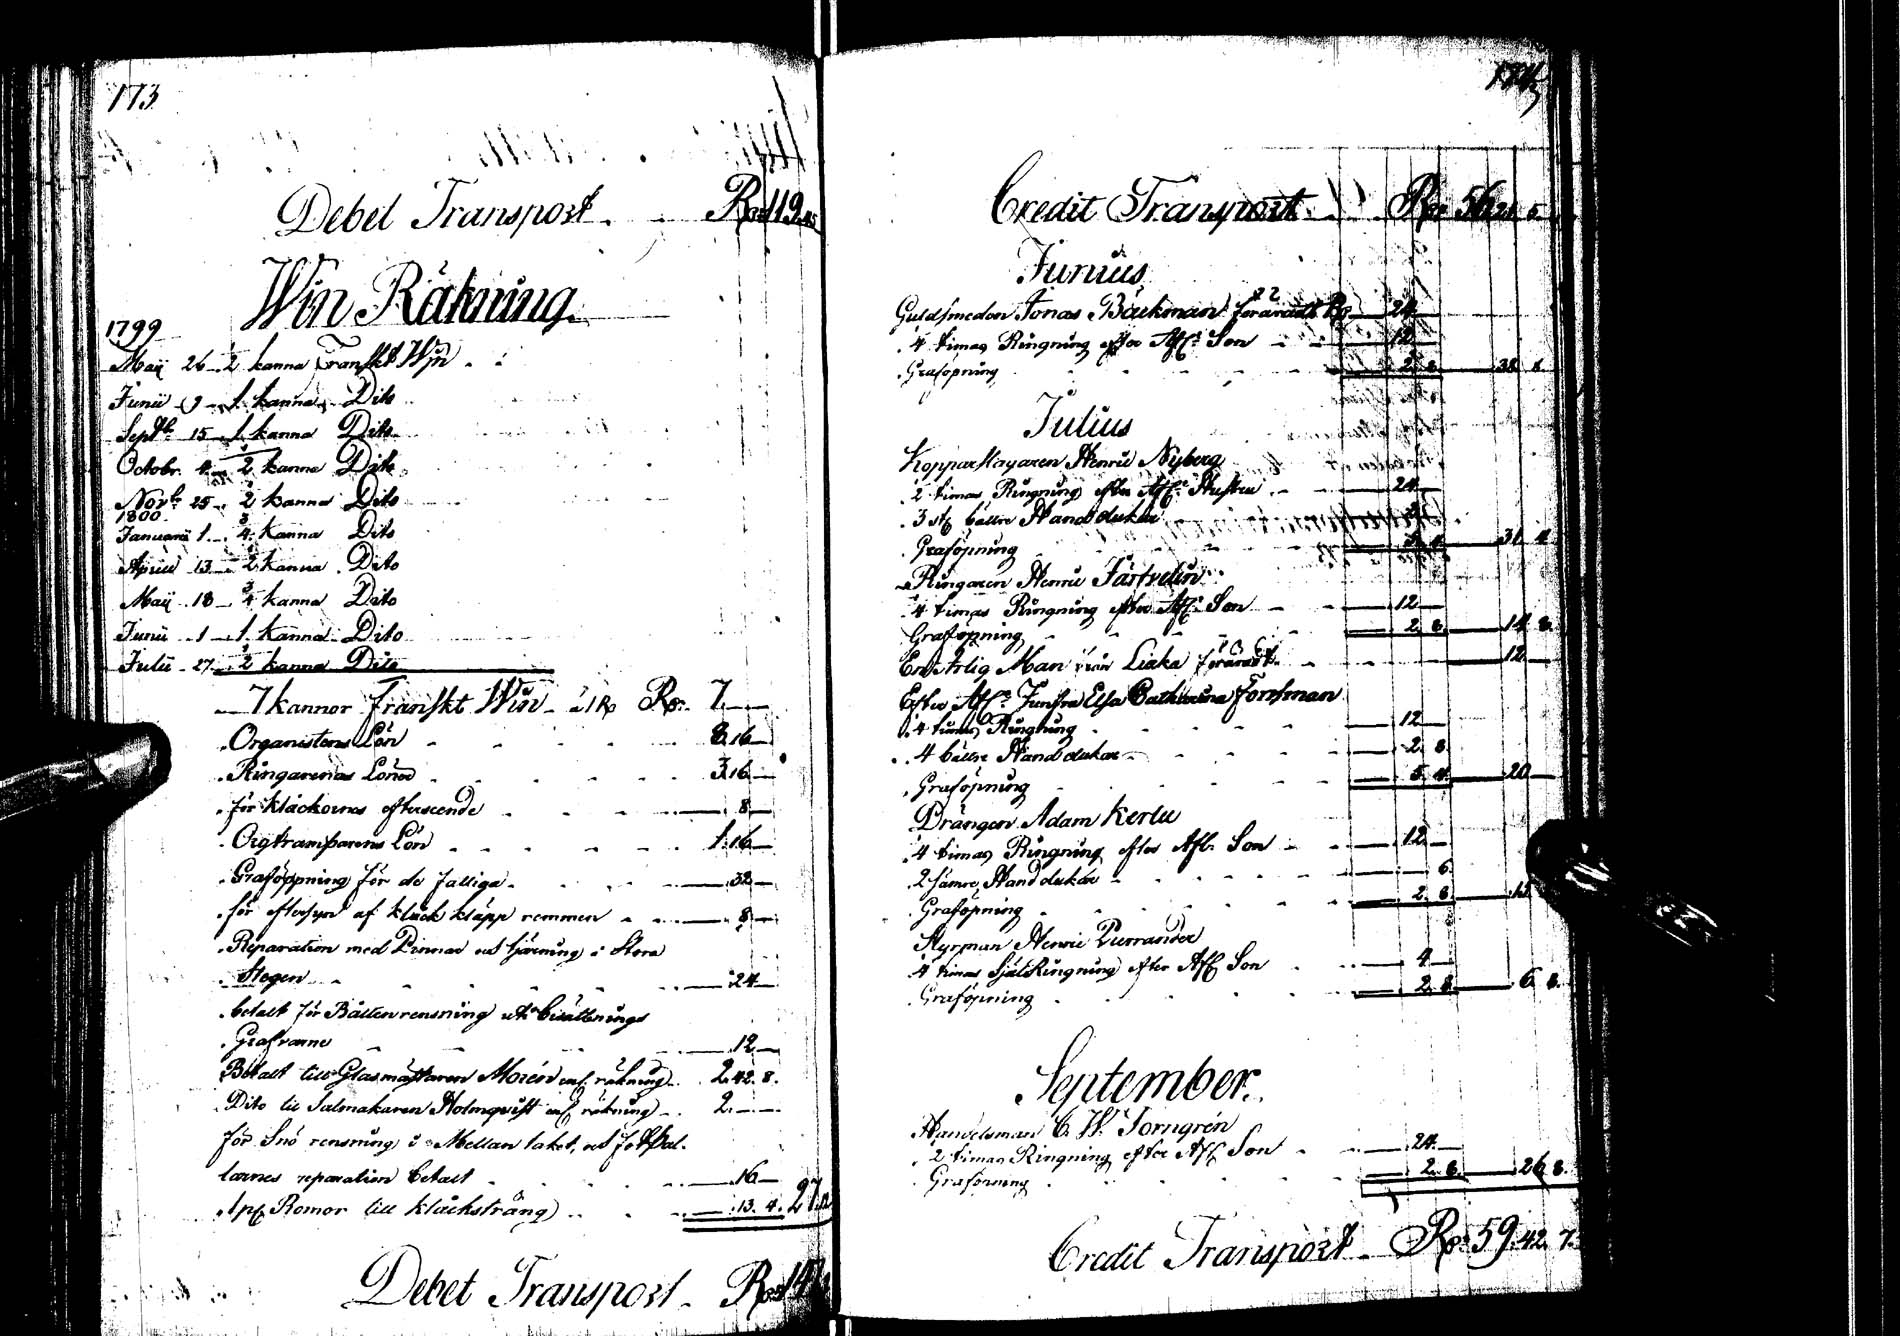 173
Debet Transport Rd 119.
Win Räkning.
1799
Maij 26 2 kanna Franskt Win
Junii 9 1 kanna Dito
Septbr 15 1 kanna Dito
Octobr. 4 1/2 kanna Dito
Novbr 25 1/2 kanna Dito
1800
Januarii 1 3/4 kanna Dito
Aprill 13 1/2 kanna Dito
Maij 18 3/4 kanna Dito
Junii 1 1 kanna Dito
Julii 27 1/2 kanna Dito
7 kannor Franskt Win á 1 Rd Rd 7.
Organistens Lön 8.16
Ringarenas Löner 3.16
för klåckornes efterseende 8
Orgtramparens Lön 1.16
Graföppning för de fattiga 32
för eftersyn af kläck kläpp remmen 8
Reparation med Pinnar i Stora
Stegen 24
betalt för Båtten rensning
Grafvarne 12
Betalt till Glasmästaren Morén räkning 2.42.8.
Dito til Salmakaren Holmquist räkning 2.
för Snö rensning i Mellan taket,
larnes reparation betalt 16
Romor till klåcksträng 13.4. 27.
Debet Transport Rd 147
174
Credit Transport Rd 56.21.5.
Junius
Guldsmeden Jonas Bäckman föräradt Rd 24
4 timas Ringning efter Afl. Son 12
Graföpning 2.8 38.8
Julius
Kopparslagaren Henric Nyberg
2 timas Ringning efter Afl. Hustru 24
3 st bättre Handdukar 2
Graföpning 5.4 31.4
Ringaren Henric Färtvelin
4 timas Ringning efter Afl. Son 12
Graföpning 2.8. 14.8.
En Ärlig Man från Liaka föräradt 12
Efter Afl. Junfru Elsa Catharina Forssman
4 timas Ringning 12
4 bättre Handdukar 2.8.
Graföpning 5.4. 20
Drängen Adam Kerlu
4 timas Ringning efter Afl. Son 12
2 sämre Handdukar 6.
Graföpning 2.8. 15
Styrman Henric Purrander
4 timas Själ Ringning efter Afl Son 4
Graföpning 2.8. 6.8.
September.
Handelsman C. W. Torngrén
2 timas Ringning efter Afl Son 24
Graföpning 2.8. 26.8.
Credit Transport Rd 59.42.7.